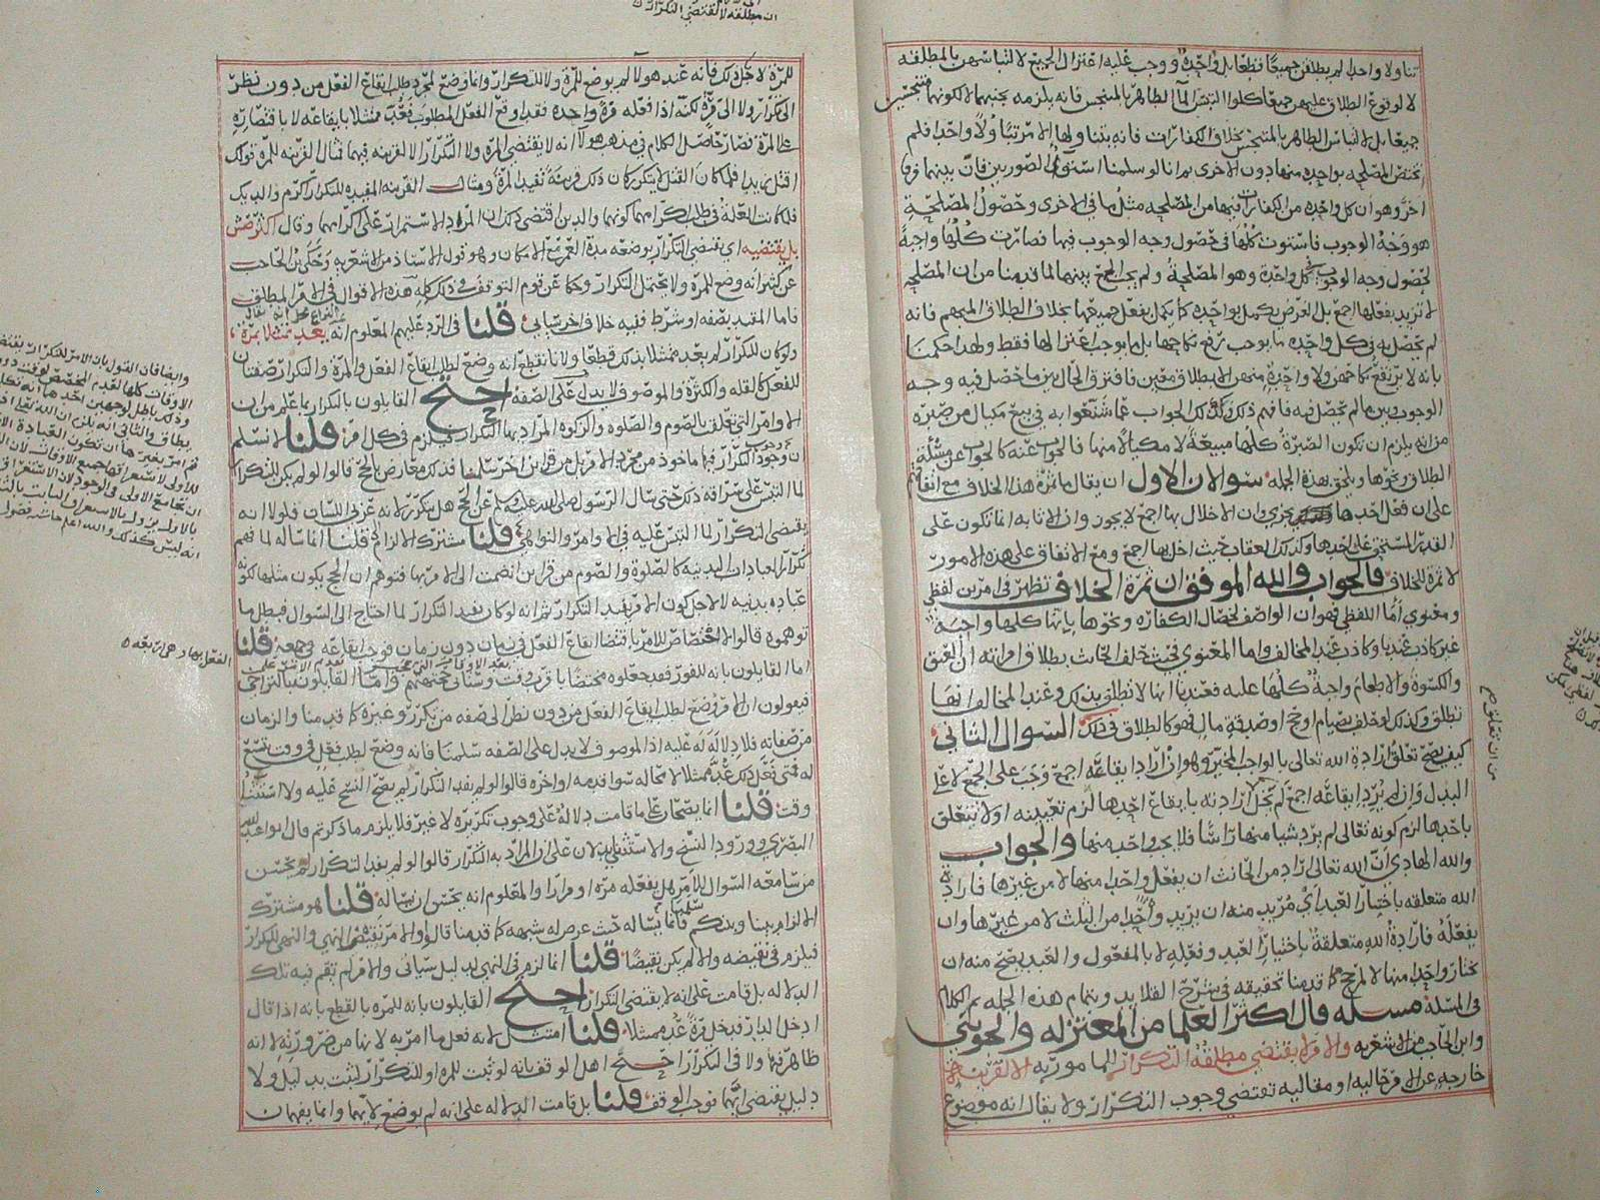 تناولا واحدا لم يطلقن جميعًا قطعا بل واحدة ووجب عليه اعتزال الجميع لالتباسهن بالمطلقه
لا لوقوع الطلاق عليهن جميعا كلو التبس الما الطاهر بالمتنجس فانه يلزمه تجنبهما لا لكونهما متنجسين
جميعا بل لالتباس الطاهر بالمتنجس بخلاف الكفارات فانه يتناولها الامر تناولا واحدا فلم
تختص المصلحه بواحده منها دون الاخرى ثم انا لو سلمنا استوى الصورتين فان بينهما فرقا
اخر وهو ان كل واحده من الكفارات فيها من المصلحه مثل ما في الاخرى وحصول المصلحة
هو وجه الوجوب فاستوت كلها في حصول وجه الوجوب فيها فصارت كلها واجبة
لحصول وجه الوجوب في كل واحدة وهو المصلحة ولم يجب الجمع بينهما لما قدمنا من ان المصلحه
لا تزيد بفعلها اجمع بل الغرض يكمل بواحده كما يكمل بفعل جميعها بخلاف الطلاق المبهم فانه
لم يحصل في كل واحده ما يوجب رفع نكاحها بل ما يوجب اعتزالها فقط ولهذا حكمنا
بانه لا يرتفع نكاحهن ولا واحدة منهن الا بطلاق معين فافترق الحال بين ما حصل فيه وجه
الوجوب وبين ما لم يحصل فيه فافهم ذلك وكذلك الجواب عما شنعوا به في بيع مكيال من صبرة
من انه يلزم ان تكون الصبرة كلها مبيعة لا مكيالا منها فالجواب عنه كالجواب عن مسئلة
الطلاق ونحوها ويلحق بهذه الجمله سوالان الاول ان يقال ما ثمرة هذا الخلاف مع اتفاقكم
على ان فعل احدها يجزي وان الاخلال بها اجمع لا يجوز وان الاثابه انما تكون على
القدر المستحق على احدها وكذلك العقاب حيث اخل بها اجمع ومع الاتفاق على هذه الامور
لا ثمرة للخلاف فالجواب والله الموفق ان ثمرة الخلاف تظهر في امرين لفظي
ومعنوي اما اللفظي فهو ان الواصف لخصال الكفاره ونحوها بانها كلها واجبة
غير كاذب عندنا وكاذب عند المخالف واما المعنوي فحيث حلف الحانث بطلاق امراته ان العتق
والكسوة والاطعام واجبة كلها عليه فعندنا انها لا تطلق بذلك وعند المخالف انها
تطلق وكذلك لو حلف بصيام او حج او صدقة مال فهو كالطلاق في ذلك السوال الثاني
كيف يصح تعلق ارادة الله تعالى بالواجب المخير وهو ان اراد ايقاعه اجمع وجب على الجمع لا على
البدل وان لم يرد ايقاعه اجمع لم تخل ارادته بايقاع احدها لزم تعيينه او لا تتعلق
باحدها لزم كونه تعالى لم يرد شيا منها راسًا فلا يجب واحد منها والجواب
والله الهادي ان الله تعالى اراد من الحانث ان يفعل واحدا منها لا من غيرها فارادة
الله متعلقه باختيار العبد اي مريد منه ان يريد واحدا من الثلث لا من غيرها وان
يفعله فارادة الله متعلقة باختيار العبد وفعله لا بالمفعول والعبد يصح منه ان
يختار واحدا منها لا لمرجح كما قدمنا تحقيقه في شرح القلايد وبتمام هذه الجمله تم الكلام
في المسئلة مسئله قال اكثر العلما من المعتزله والجويني
وابن الحاجب من الاشعريه والامر لا يقتضي مطلقه التكرار للمامور به الا لقرينة
خارجه عن الامر حاليه او مقاليه تقتضي وجوب التكرار ولا يقال انه موضوع
من ان تتعلق
ان مطلقه لا يقتضي التكرار
للمرة لاجل ذلك فانه عند هولا لم يوضع للمرة ولا للتكرار وانما وضع لمجرد طلب ايقاع الفعل من دون نظر
الى تكرار ولا الى مرة لكنه اذا فعله مرة واحده فقد اوقع الفعل المطلوب فعد ممتثلا بايقاعه لا باقتصاره
على المرة فصار حاصل الكلام في مذهب هولا انه لا يقتضي المرة ولا التكرار الا لقرينه فيهما فمثال القرينه للمره قولك
اقتل زيدا فلما كان القتل لا يتكرر كان ذلك قرينة تفيد المرة ومثال القرينه المفيده للتكرار اكرم والديك
فلما كانت العلة في طلب اكرامهما كونهما والدين اقتضى ذلك ان المراد الاستمرار على اكرامهما وقال
بل يقتضيه اي يقتضي التكرار بوضعه مدة العمر مع الامكان وهو قول الاستاذ من الاشعريه وحكى ابن الحاجب
عن كثير انه وضع للمرة ولا يحتمل التكرار وحكا عن قوم التوقف في ذلك كله هذه الاقوال في الامر المطلق
فاما المقيد بصفه او شرط ففيه خلاف اخر سياتي قلنا في الرد عليهم المعلوم انه يعد ممتثلا بمرة
ولو كان للتكرار لم يعد ممتثلا بذلك قطعًا ولانا نقطع انه وضع لطلب ايقاع الفعل والمرة والتكرار صفتان
للفعل كالقله والكثرة والموصوف لا يدل على الصفه احتج القايلون بالتكرار بما علم من ان
الاوامر التي تعلقت بالصوم والصلوه والزكوه المراد بها التكرار فيلزم في كل امر قلنا لا نسلم
ان وجوب التكرار فيها ماخوذ من مجرد الامر بل من قراين اخر سلمنا فذلك معارض بالحج قالوا لو لم يكن للتكرار
لما التبس على سراقه ذلك حتى سال الرسول صلى الله عليه وسلم عن الحج هل يتكرر لانه عربي اللسان فلولا انه
يقتضي التكرار لما التبس عليه في الاوامر والنواهي قلنا مشترك الالزام ثم قلنا انما ساله لما فهم
تكرار العبادات البدنيه كالصلوة والصوم من قراين انضمت الى الامر بها فتوهم ان الحج يكون مثلها لكونه
عباده بدنيه لا لاجل كون الامر يفيد التكرار ثم انه لو كان يفيد التكرار لما احتاج الى السوال فبطل ما
توهموه قالوا لا اختصاص للامر باقتضا ايقاع الفعل في زمان دون زمان فوجب ايقاعه في جميعه قلنا
اما القايلون بانه للفور فقد جعلوه مختصًا باقرب وقت وستاتي حجتهم واما القايلون بالتراخي
فيقولون ان الامر وضع لطلب ايقاع الفعل من دون نظر الى صفه من تكرر وغيره كما قدمنا والزمان
من صفاته فلا دلالة له عليه اذ الموصوف لا يدل على الصفه سلمنا فانه وضع لطلب فعل في وقت يتسع
له فمتى فعل ذلك عد ممتثلا لا محاله سوا قدمه او اخره قالوا لو لم يفد التكرار لم يصح النسخ عليه ولا استثنا
وقت قلنا انما يصحان على ما قامت دلالة على وجوب تكريره لا غير فلا يلزم ما ذكرتم قال ابو عبد الله
البصري وورود النسخ والاستثنا يدلان على ان المراد به التكرار قالوا لو لم يفد التكرار لم يحسن
من سامعه السوال للامر هل يفعله مره او مرارا والمعلوم انه يحسن ان يساله قلنا هو مشترك
الالزام بيننا وبينكم سلمنا فانما يساله حيث عرض له شبهه كما قدمنا قالوا والامر نقيض النهي والنهي للتكرار
فيلزم في نقيضه والا لم يكن نقيضًا قلنا انما لزم في النهي لدليل سياتي والامر لم تقم فيه تلك
الدلاله بل قامت على انه لا يقتضي التكرار احتج القايلون بانه للمره بالقطع بانه اذا قال
ادخل الدار فدخل مرة عد ممتثلا قلنا امتثل لانه فعل ما امر به لا نها من ضرورته لا انه
ظاهر فيها ولا في التكرار احتج اهل الوقف بانه لو ثبت للمره او للتكرار لثبت بدليل ولا
دليل يقتضي ايهما فوجب الوقف قلنا بل قامت الدلاله على انه لم يوضع لايهما وانما يفهمان
وايضا فان القول بان الامر للتكرار يقتضي
الاوقات كلها لعدم المخصص لوقت دون
وذلك باطل لوجهين احدهما انه تكليف
يطاق والثاني انه يلزم ان الله تعالى اذا
ثم امر بغيرها ان تكون العبادة
للاولى لاستغراقها جميع الاوقات لان
ان تجامع الاولى في الوجود لان الاستغراق
بالاول يزول بالاستغراق الثابت بالثاني
انه ليس كذلك والله اعلم